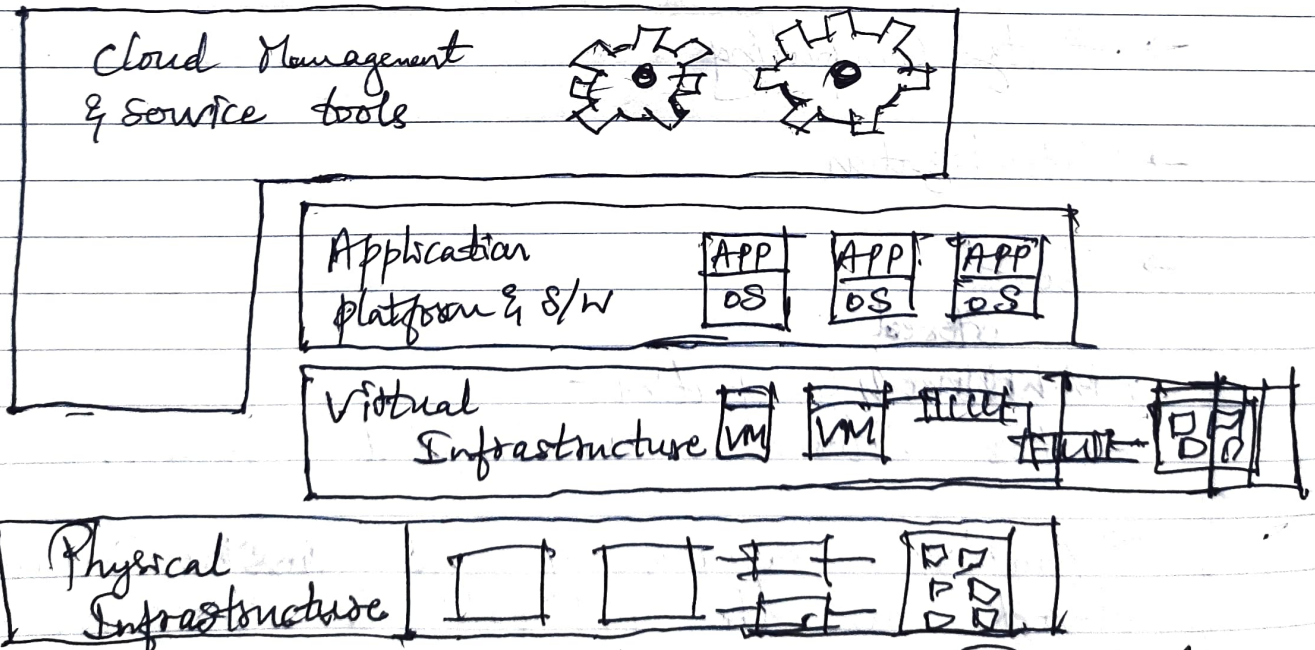 Cloud Management
& service tools
Application
platform & S/W
APP APP APP
OS OS OS
Virtual
Infrastructure
VM VM
Physical
Infrastructure